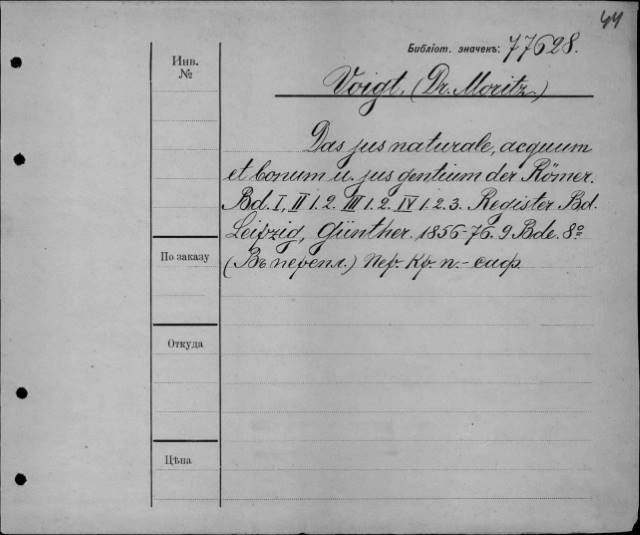 44
Библіот. значекъ: 77628.
Инв.
№
Voigt. (Dr. Moritz)
Das jus naturale, aequum
et bonum u. jus gentium der Römer.
Bd. I, II 1. 2. III 1. 2. IV 1. 2. 3. Register Bd.
Leipzig, Günther. 1856-76. 9 Bde. 8º
(Въ перепл.) Пер. Кр. п.-саф.
По заказу
Откуда
Цѣна